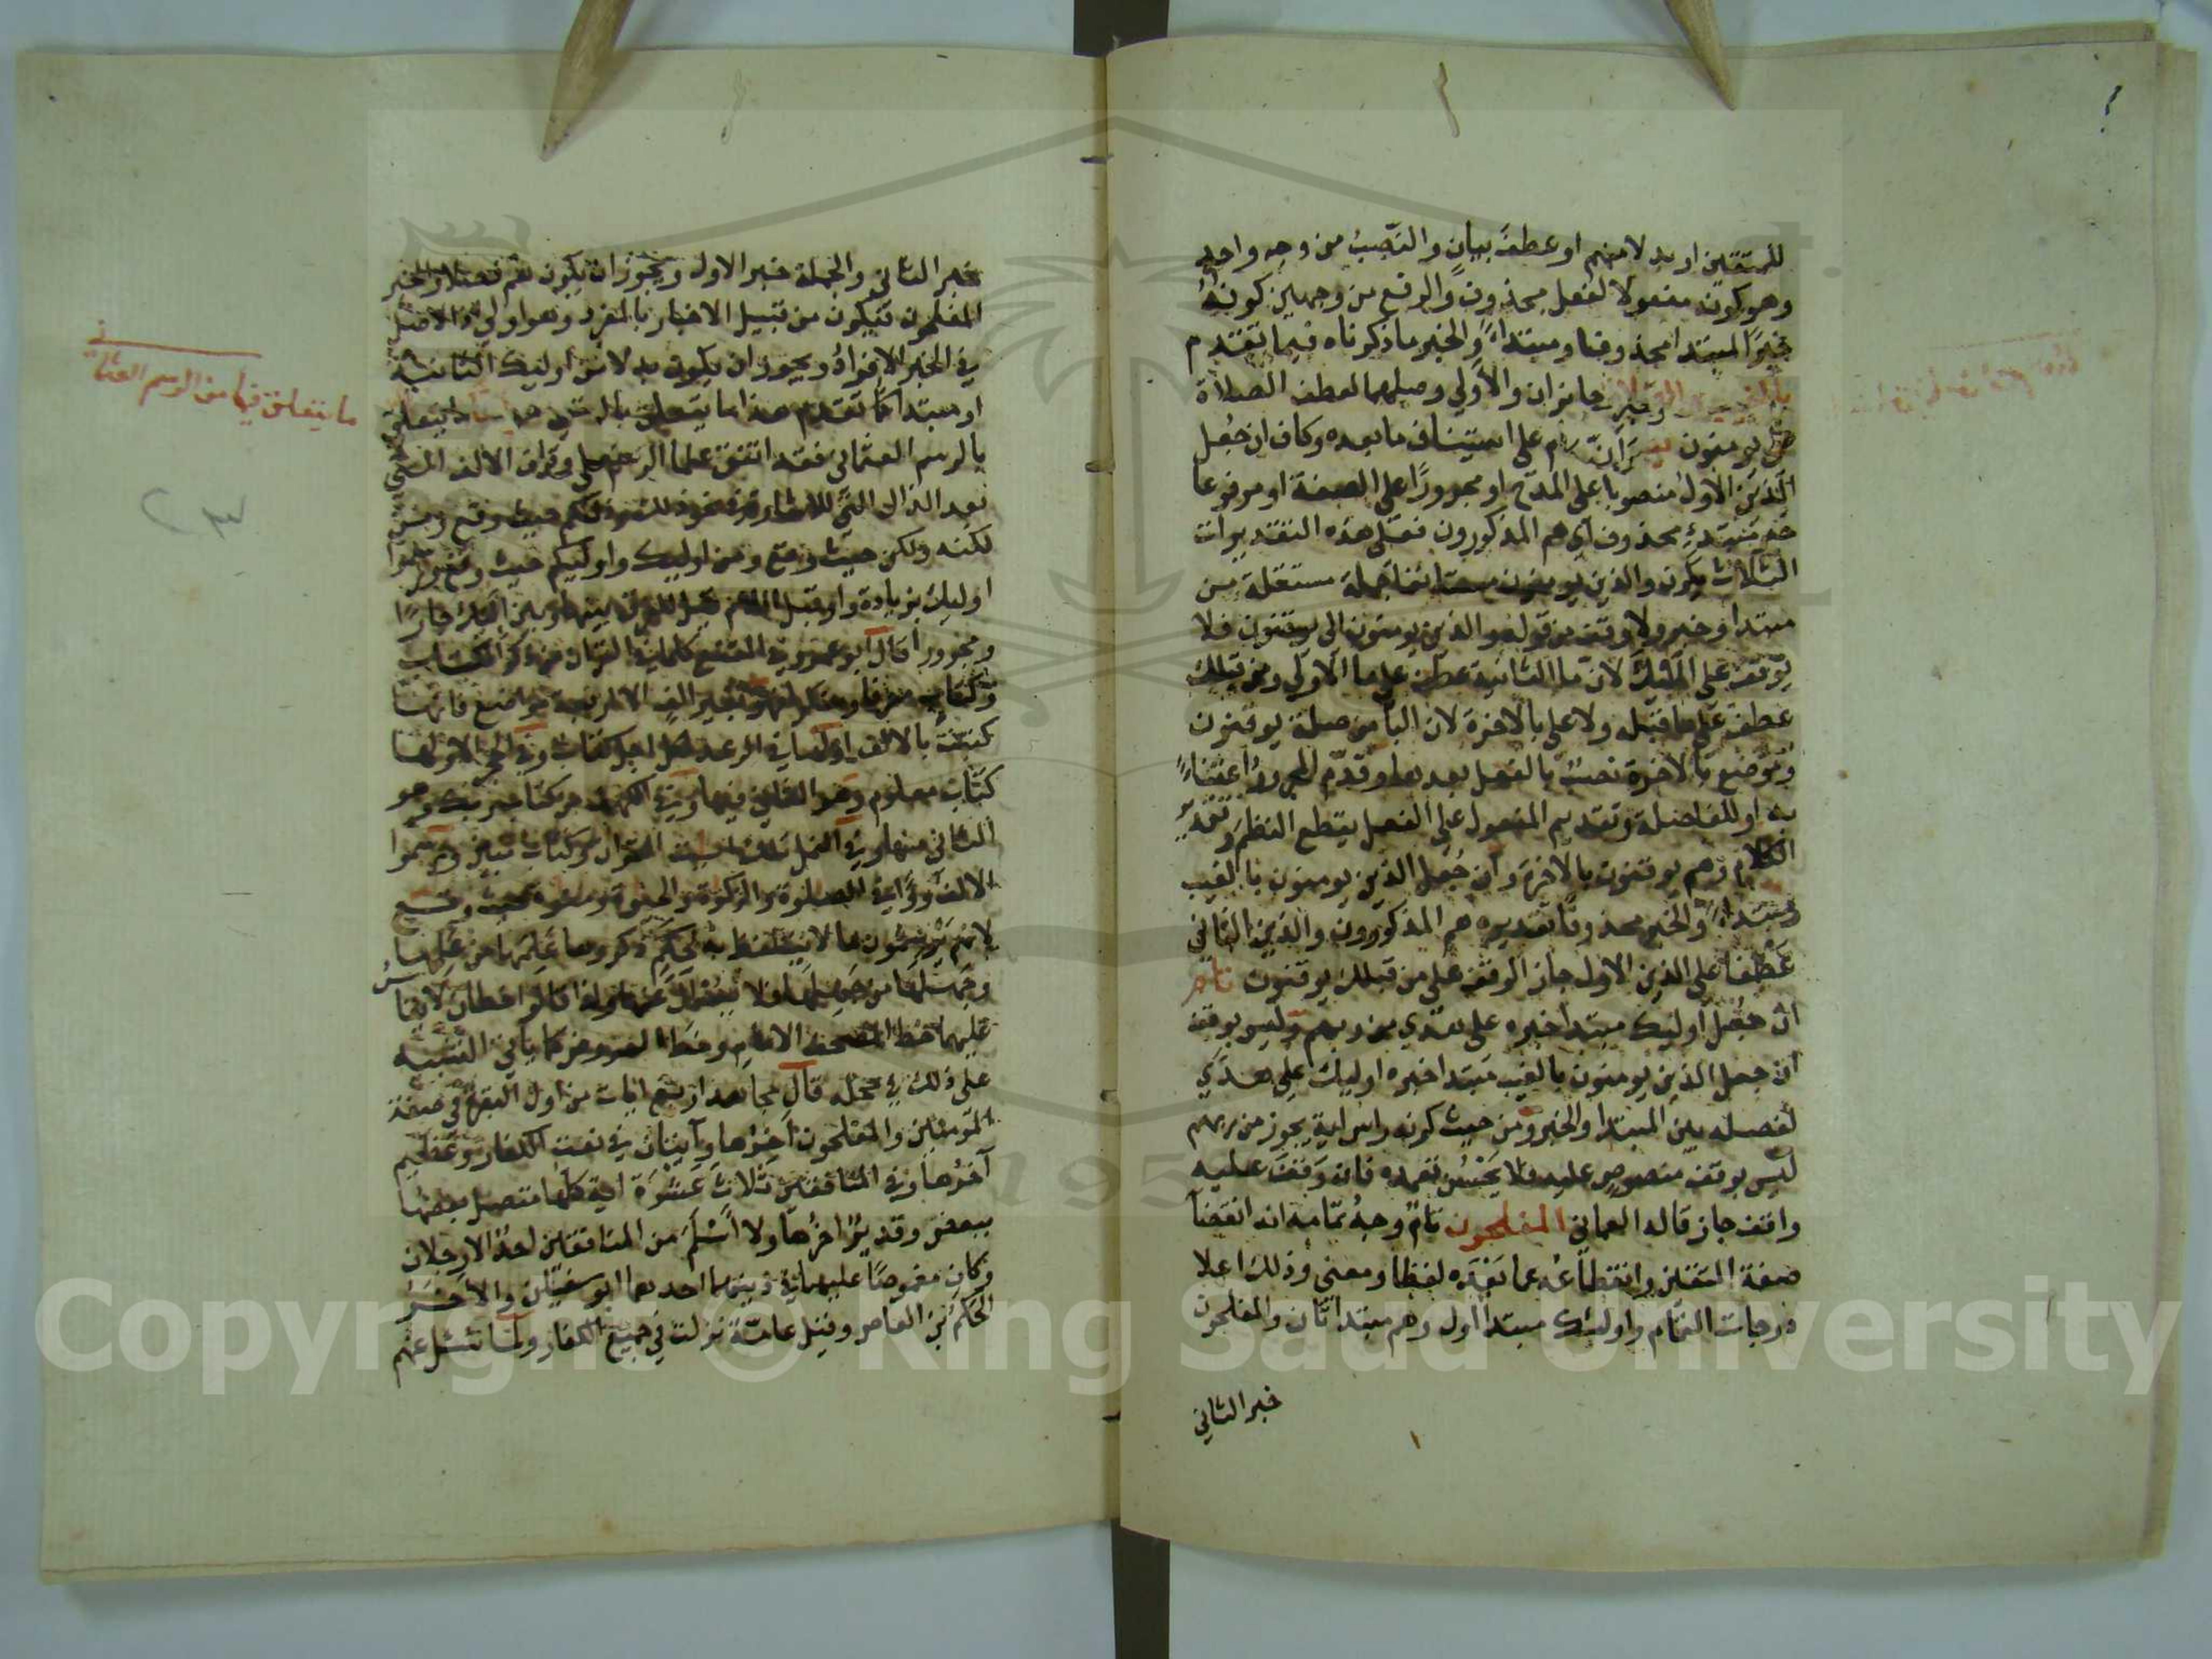 للمتقين او بدلا منهم او عطف بيان والنصب من وجه واحد
وهو كونه مفعولا لفعل محذوف والرفع من وجهين كونه
خبر المبتدا محذوفا ومبتداء والخبر ما ذكرناه فيما تقدم
جايزان والاولى وصلهما لعطف الصلاة
على يومنون على استيناف ما بعده وكاف ان جعل
الذين الاول منصوبا على المدح او مجرورا على الصفة او مرفوعا
خبر مبتدء محذوف اي هم المذكورون فعلى هذه التقديرات
الثلاث يكون والذين يومنون مستانفا جملة مستقلة من
مبتدا وخبر ولا وقف من قوله والذين يومنون الى يوقنون فلا
يوقف على اليك لان ما الثانية عطف على ما الاولى ومن قبلك
عطف على ما قبله ولا على بالاخرة لان البا من صلة يوقنون
وموضع بالاخرة نصب بالفعل بعدها وقدم المجرور اعتناء
به او للفاصلة وتقديم المفعول على الفعل يقطع النظم وتقدير
الكلام وهم يوقنون بالاخرة وان جعل الذين يومنون بالغيب
مبتداء والخبر محذوفا تقديره هم المذكورون والذين الثاني
عطفا على الذين الاول جاز الوقف على من قبلك يوقنون تام
ان جعل اوليك مبتدا خبره على هدي من ربهم وليس بوقف
ان جعل الذين يومنون بالغيب مبتدا خبره اوليك على هدي
لفصله بين المبتدا والخبر ومن حيث كونه راس اية يجوز من ربهم
ليس بوقف منصوص عليه فلا يحسن تعمده فان وقف عليه
واقف جاز قاله العماني المفلحون تام وجه تمامه انه انقضا
صفة المتقين وانقطاعه عما بعده لفظا ومعنى وذلك اعلا
درجات التمام واوليك مبتدا اول وهم مبتدا ثان والمفلحون
خبر الثاني
خبر الثاني والجملة خبر الاول ويجوز ان يكون هم فصلا والخبر
المفلحون فيكون من قبيل الاخبار بالمفرد وهو اولى اذ الاصل
في الخبر الافراد ويجوز ان يكون بدلا من اوليك الثانية
او مبتدا كما تقدم هذا ما يتعلق
بالرسم العثماني فقد اتفق علما الرسم على حذف الالف التي
بعد الذال التي للاشارة نحو ذلك وذلكم حيث وقع ومن
لكنه ولكن حيث وقع ومن اوليك واوليكم حيث وقع
اوليك بزيادة واو قبل اللام قيل للفرق بينها وبين اليك جارا
ومجرورا قال ابو عمرو في المقنع كلما في القران من ذكر الكتاب
وكتاب معرفا ومنكرا فهو بغير الف الا اربعة مواضع فانها
كتبت بالالف اولها في الرعد لكل اجل كتاب وفي الحجر الا ولها
كتاب معلوم وهو الثاني فيها وفي الكهف من كتاب ربك وهو
الثاني منها وفي النمل تلك ايات القران وكتاب مبين ورسموا
الالف واوا في الصلوة والزكوة والحيوة ومنوة حيث وقع
لانهم يرسمون ما لا يتلفظ به لحكم ذكروها علمها من علمها
وجهلها من جهلها فلا يعترض عنها ولذا قالوا خطان لا يقاس
عليهما خط المصحف الامام وخط العروض كما ياتي التنبيه
على ذلك في محله قال مجاهد اربع ايات من اول البقرة في صفة
المومنين والمفلحون اخرها وآيتان في نعت الكفار وعظيم
آخرها وفي المنافقين ثلاث عشرة اية كلها متصل بعضها
ببعض وقدير اخرها ولا اسلم من المنافقين احد الا رجلان
وكان مغموصا عليهما في دينهما احدهما ابو سفيان والاخر
الحكم بن العاص وقيل عامة نزلت في جميع الكفار
ما يتعلق فيها من الرسم العثماني
Copyright © King Saud University
1957